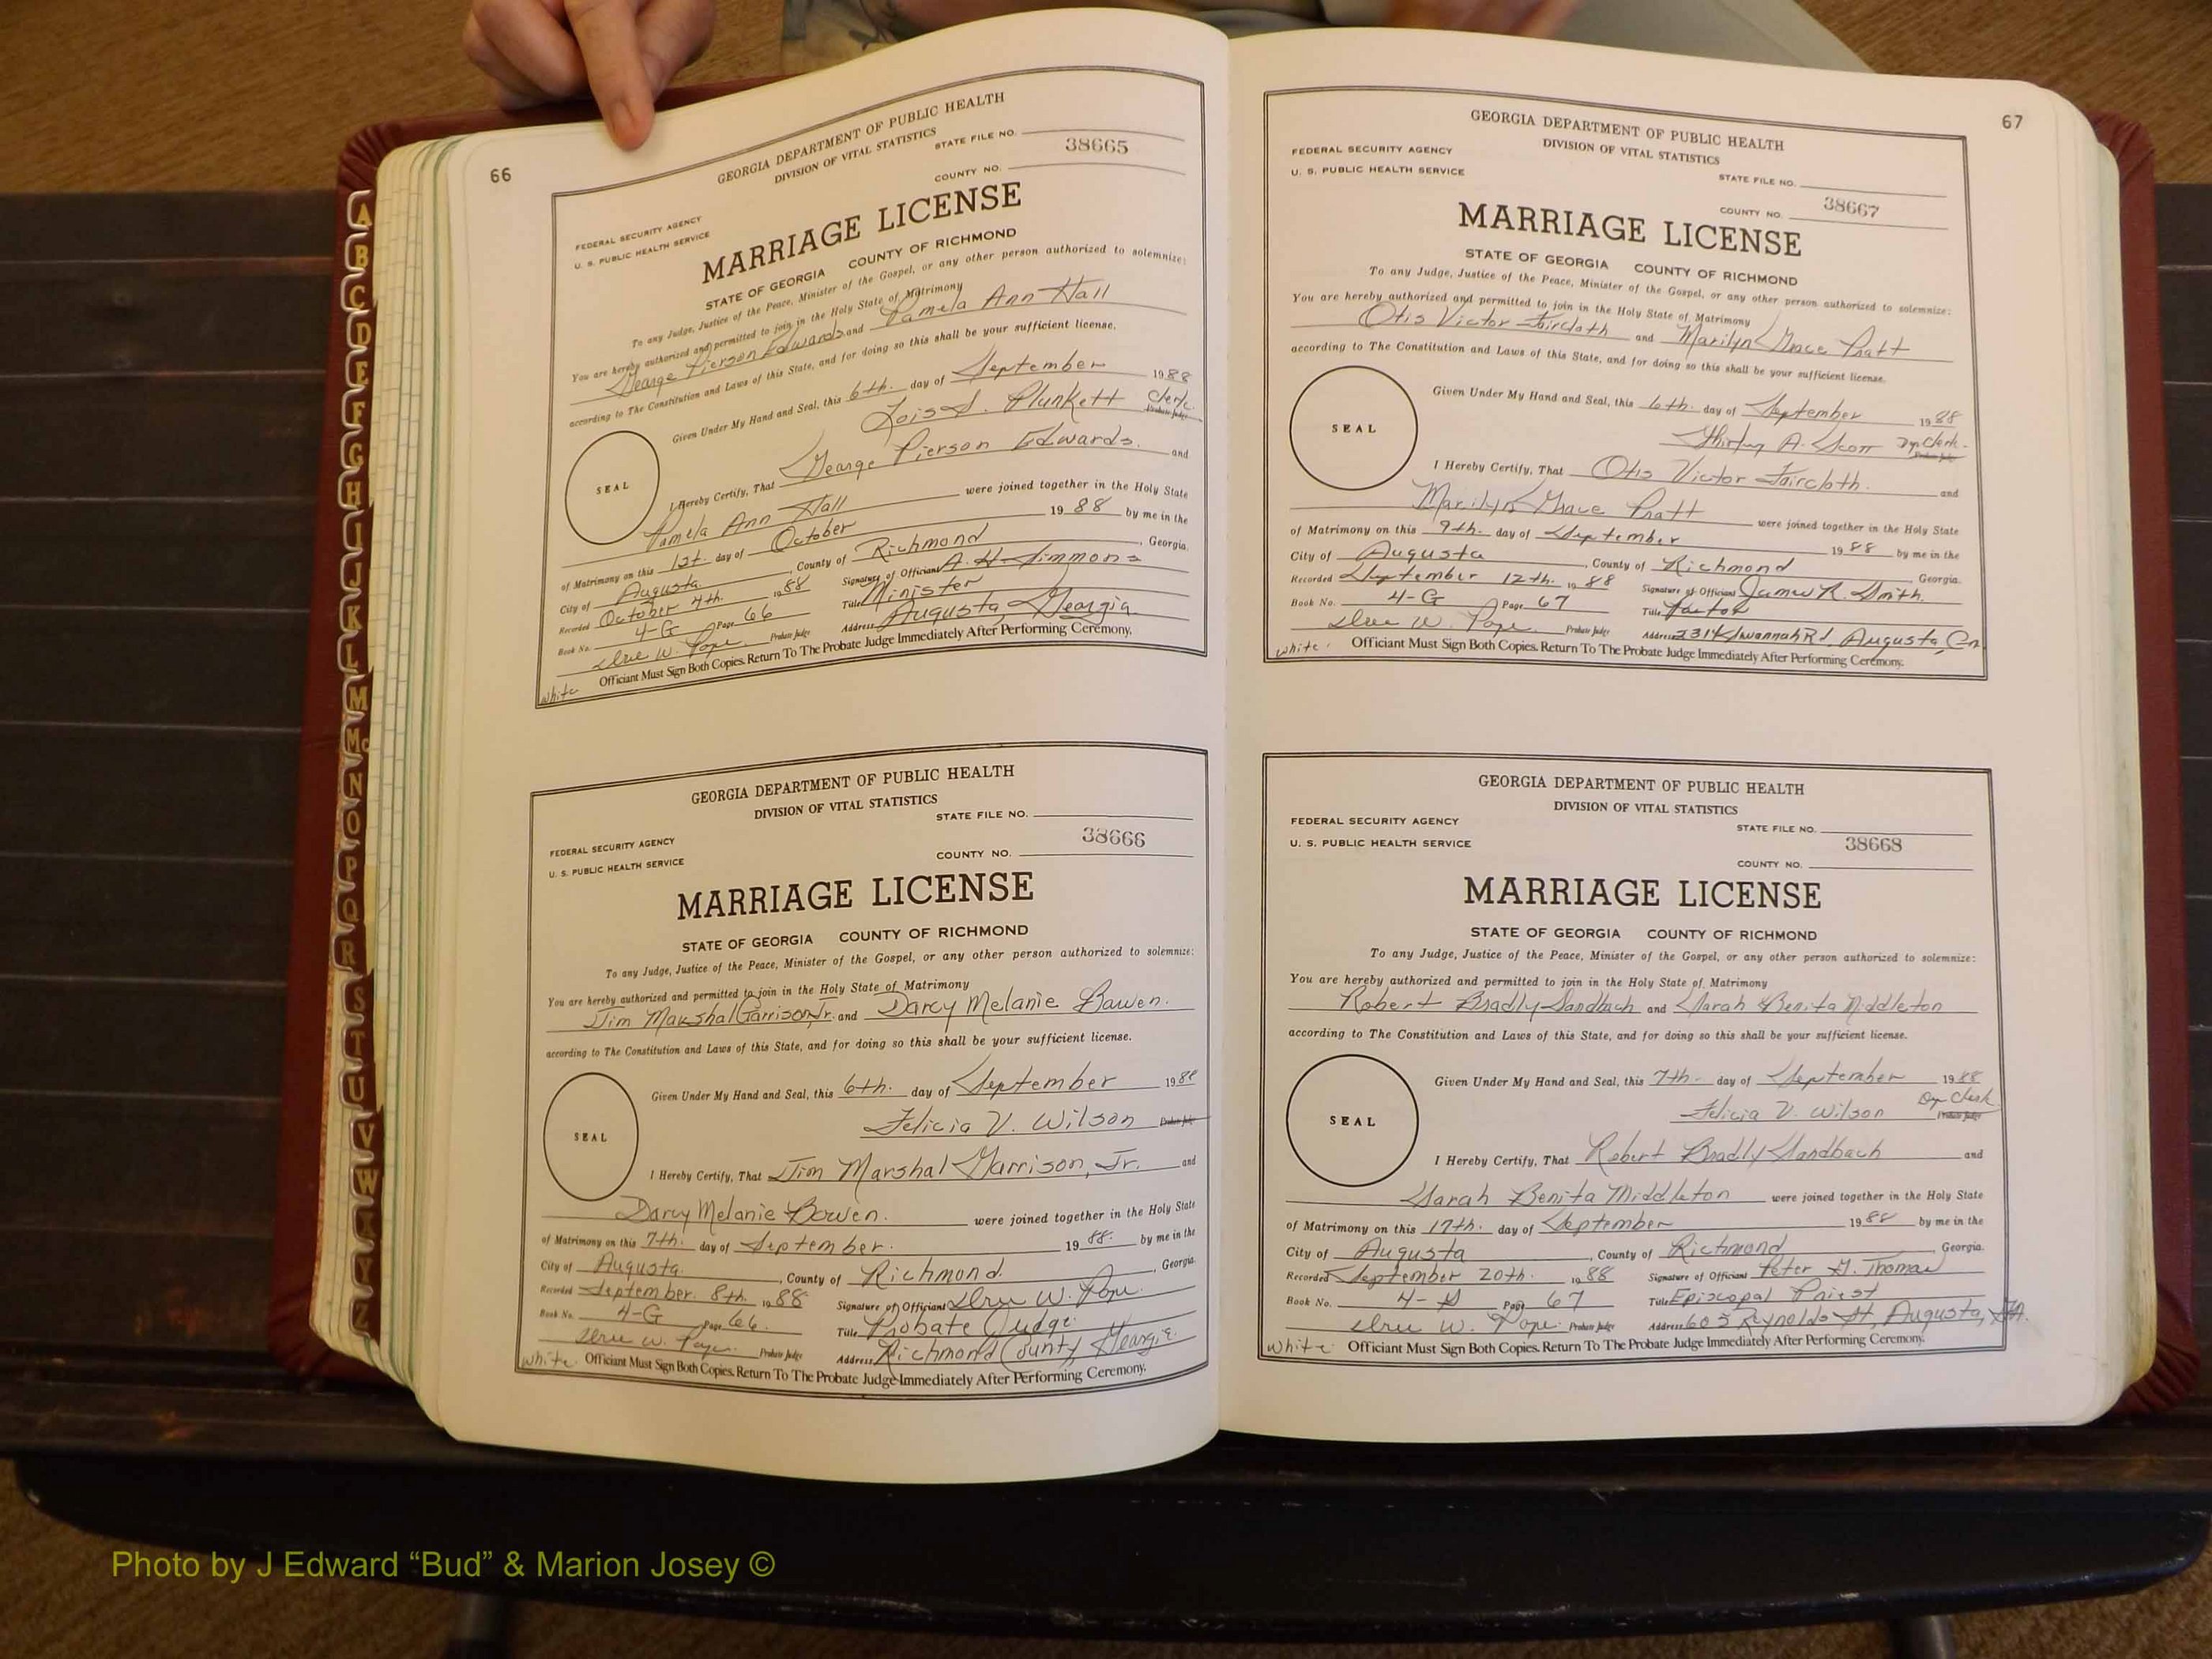 66
GEORGIA DEPARTMENT OF PUBLIC HEALTH
DIVISION OF VITAL STATISTICS
STATE FILE NO.
38665
COUNTY NO.
FEDERAL SECURITY AGENCY
U. S. PUBLIC HEALTH SERVICE
MARRIAGE LICENSE
STATE OF GEORGIA COUNTY OF RICHMOND
To any Judge, Justice of the Peace, Minister of the Gospel, or any other person authorized to solemnize:
You are hereby authorized and permitted to join in the Holy State of Matrimony
George Pierson Edwards and Pamela Ann Hall
according to The Constitution and Laws of this State, and for doing so this shall be your sufficient license.
Given Under My Hand and Seal, this 6th. day of September 1988
Lois S. Plunkett Clerk
Probate Judge
SEAL
I Hereby Certify, That George Pierson Edwards. and
Pamela Ann Hall were joined together in the Holy State
of Matrimony on this 1st. day of October 1988 by me in the
City of Augusta. County of Richmond, Georgia.
Recorded October 4th. 1988 Signature of Officiant A. H. Simmons
Book No. 4-G Page 66 Title Minister
Probate Judge Address Augusta, Georgia
Officiant Must Sign Both Copies. Return To The Probate Judge Immediately After Performing Ceremony.
white
GEORGIA DEPARTMENT OF PUBLIC HEALTH
DIVISION OF VITAL STATISTICS
STATE FILE NO.
38666
COUNTY NO.
FEDERAL SECURITY AGENCY
U. S. PUBLIC HEALTH SERVICE
MARRIAGE LICENSE
STATE OF GEORGIA COUNTY OF RICHMOND
To any Judge, Justice of the Peace, Minister of the Gospel, or any other person authorized to solemnize:
You are hereby authorized and permitted to join in the Holy State of Matrimony
Jim Marshal Garrison, Jr. and Darcy Melanie Bowen.
according to The Constitution and Laws of this State, and for doing so this shall be your sufficient license.
Given Under My Hand and Seal, this 6th. day of September 1988
Felicia V. Wilson Probate Judge
SEAL
I Hereby Certify, That Jim Marshal Garrison, Jr. and
Darcy Melanie Bowen. were joined together in the Holy State
of Matrimony on this 7th. day of September. 1988. by me in the
City of Augusta. , County of Richmond. , Georgia.
Recorded September. 8th. 1988 Signature of Officiant W. Pope
Book No. 4-G Page 66. Title Probate Judge
W. Pope. Probate Judge Address Richmond County, Georgia.
white. Officiant Must Sign Both Copies. Return To The Probate Judge Immediately After Performing Ceremony.
67
GEORGIA DEPARTMENT OF PUBLIC HEALTH
DIVISION OF VITAL STATISTICS
FEDERAL SECURITY AGENCY
U. S. PUBLIC HEALTH SERVICE
STATE FILE NO.
38667
COUNTY NO.
MARRIAGE LICENSE
STATE OF GEORGIA COUNTY OF RICHMOND
To any Judge, Justice of the Peace, Minister of the Gospel, or any other person authorized to solemnize:
You are hereby authorized and permitted to join in the Holy State of Matrimony
Otis Victor Faircloth and Marilyn Grace Pratt
according to The Constitution and Laws of this State, and for doing so this shall be your sufficient license.
Given Under My Hand and Seal, this 6th. day of September 1988
Shirley A. Scott Dp Clerk.
Probate Judge
SEAL
I Hereby Certify, That Otis Victor Faircloth. and
Marilyn Grace Pratt were joined together in the Holy State
of Matrimony on this 9th. day of September 1988 by me in the
City of Augusta , County of Richmond , Georgia.
Recorded September 12th. 1988 Signature of Officiant James R. Smith.
Book No. 4-G Page 67 Title Pastor
W. Pope Probate Judge Address Augusta,
white. Officiant Must Sign Both Copies. Return To The Probate Judge Immediately After Performing Ceremony.
GEORGIA DEPARTMENT OF PUBLIC HEALTH
DIVISION OF VITAL STATISTICS
FEDERAL SECURITY AGENCY
STATE FILE NO.
U. S. PUBLIC HEALTH SERVICE
38668
COUNTY NO.
MARRIAGE LICENSE
STATE OF GEORGIA COUNTY OF RICHMOND
To any Judge, Justice of the Peace, Minister of the Gospel, or any other person authorized to solemnize:
You are hereby authorized and permitted to join in the Holy State of Matrimony
Robert Bradly Sandbach and Sarah Benita Middleton
according to The Constitution and Laws of this State, and for doing so this shall be your sufficient license.
Given Under My Hand and Seal, this 7th. day of September 1988
Felicia V. Wilson Dp Clerk
Probate Judge
SEAL
I Hereby Certify, That Robert Bradly Sandbach and
Sarah Benita Middleton were joined together in the Holy State
of Matrimony on this 17th. day of September 1988 by me in the
City of Augusta , County of Richmond , Georgia.
Recorded September 20th. 1988 Signature of Officiant Peter G. Thomas
Book No. 4-G Page 67 Title Episcopal Priest
W. Pope. Probate Judge Address 605 Reynolds St, Augusta, GA.
white Officiant Must Sign Both Copies. Return To The Probate Judge Immediately After Performing Ceremony.
A
B
C
D
E
F
G
H
I
J
K
L
M
Mc
N
O
P
Q
R
S
T
U
V
W
X
Y
Z
Photo by J Edward “Bud” & Marion Josey ©